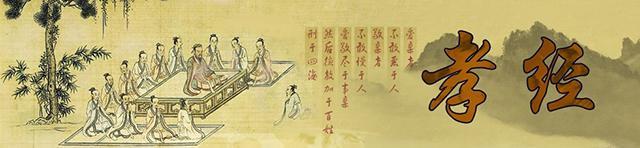 孝经
爱亲者
不敢恶于人
敬亲者
不敢慢于人
爱敬尽于事亲
然后德教加于百姓
刑于四海